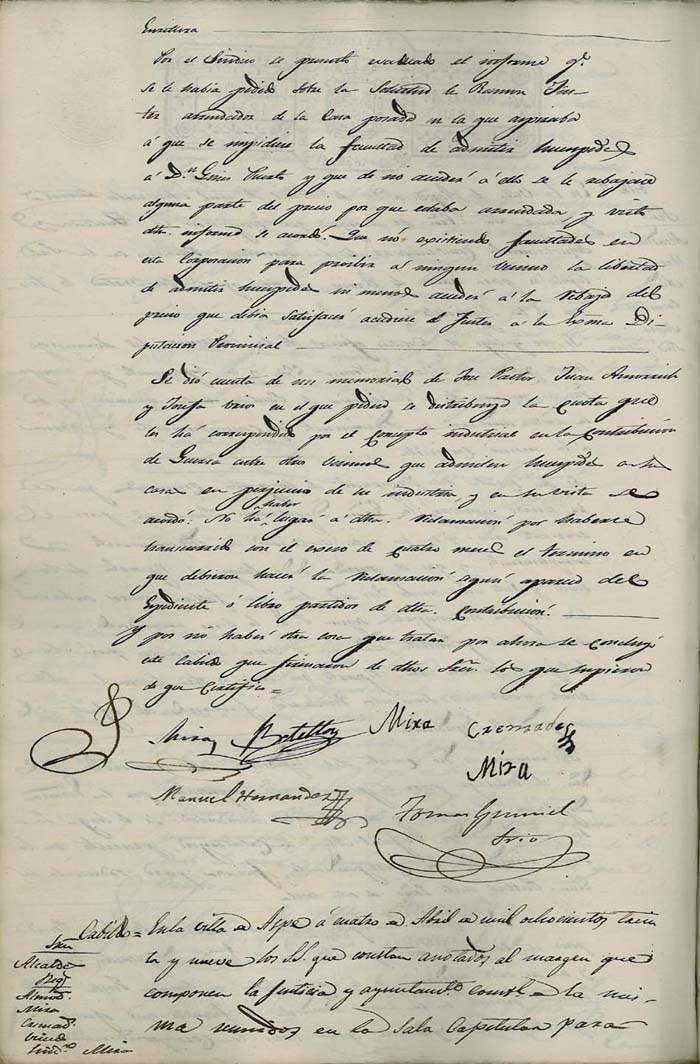 Escritura
Por el Sindico se presentó evaluado el informe qᵉ.
se le habia pedido sobre la Solicitud de Ramon Jus-
ter arrendador de la Casa posada en la que aspiraba
á que se impidiese la facultad de admitir huespedes
á Dⁿ Gines Puerto y que de no acceder á ello se le rebajase
alguna parte del precio por que estaba arrendada y visto
dho. informe se acordó: Que nó existiendo facultades en
esta Corporación para proibir á ningun vecino la libertad
de admitir huespedes ni menos acceder á la rebaja del
precio que debia satisfacer acudiese el Juster á la Exma Di-
putacion Provincial
Se dió cuenta de un memorial de José Pastor, Juan
y Josefa en el que piden se distribuya la cuota que
les há correspondido por el concepto industrial en la Contribucion
de Guerra entre otros vecinos que admiten huespedes en su
casa en perjuicio de su industria y en su vista se
acordó: No há haber lugar á dha. reclamacion por haberse
transcurrido con el exceso de cuatro meses el termino en
que debieron hacer la reclamacion segun aparece del
Expediente ó libro partidor de dha. contribucion.
Y por nó haber otra cosa que tratar por ahora se concluyó
este Cabildo que firmaron de dhos Sres. los que supieron
de que Certifico =
Mira Botella Mira Cremades
Mira
Manuel Hernandez
Tomas
Srio
Cabildo = En la villa de Aspe á cuatro de Abril de mil ochocientos trein
ta y nueve los SS. que constan anotados al margen que
componen la Justicia y ayuntamto. constl. de la mis-
ma reunidos en la Sala Capitular para
Sres
Alcalde
Regs
Almod.
Mira
Cremad.
Sindco Mira